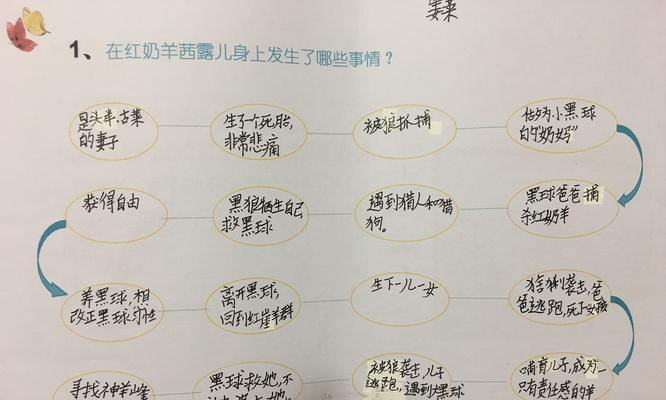 姜菜
1、在红奶羊茜露儿身上发生了哪些事情？
是头羊·古莱
的妻子
生了一个死胎，
非常悲痛
被狼抓捕
成为小黑球
的"奶妈"
获得自由
黑狼牺牲自己
救黑球
遇到猎人和猎
狗。
黑球爸爸捕
杀红奶羊
养黑球，想
改正黑球习性
离开黑球，
回到红崖羊群
生下一儿一女
猞猁袭击，爸
爸逃跑，死了女孩
寻找神羊峰
黑球救她，不
被狼袭击，儿子
逃跑，遇到黑球
哺育儿子，成为一
只有责任感的羊